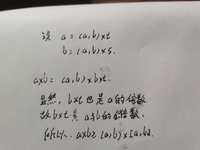 设 a = (a,b)×t
b = (a,b)×s.
a×b = (a,b)×b×t.
显然, b×t也是a的倍数
故b×t是a与b的公倍数.
所以. a×b≥(a,b)×[a,b].